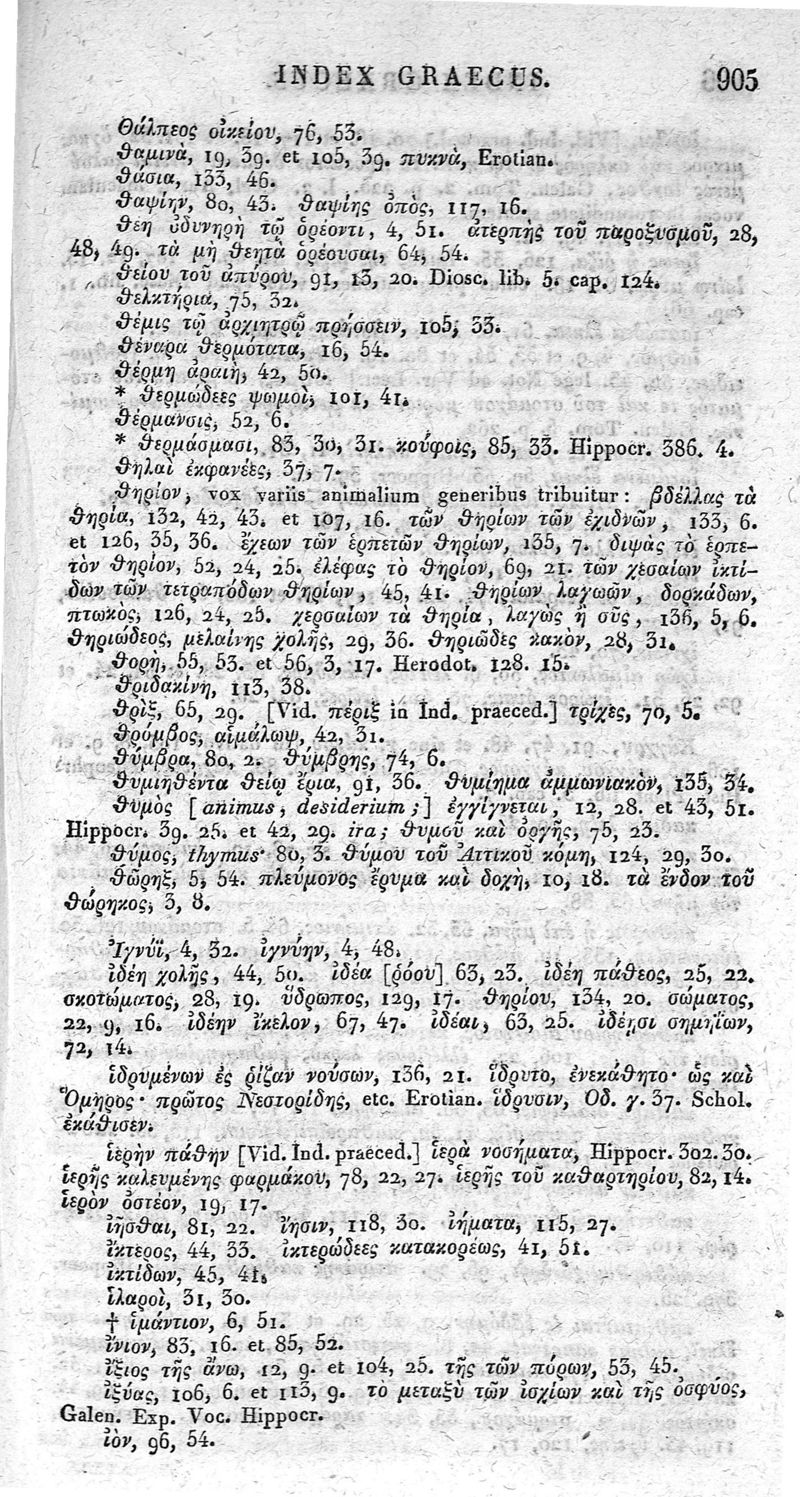 INDEX GRAECUS. 905
Θάλπεος οἰκείου, 76, 53.
θαμινὰ, 19, 39. et 105, 39. πυκνὰ, Erotian.
θάσια, 133, 46.
θαψίην, 80, 43. θαψίης ὀπὸς, 117, 16.
θέη ὀδυνηρὴ τῷ ὁρέοντι, 4, 51. ἀτερπὴς τοῦ παροξυσμοῦ, 28,
48, 49. τὰ μὴ θεητὰ ὁρέουσαι, 64, 54.
θείου τοῦ ἀπύρου, 91, 13, 20. Diosc. lib. 5. cap. 124.
θελκτήρια, 75, 32.
θέμις τῷ ἀρχιητρῷ πρήσσειν, 105, 33.
θέναρα θερμότατα, 16, 54.
θέρμη ἀραιὴ, 42, 50.
* θερμώδεες ψωμοὶ, 101, 41.
θέρμανσις, 52, 6.
* θερμάσμασι, 83, 30, 31. κούφοις, 85, 33. Hippocr. 386. 4.
θηλαὶ ἐκφανέες, 37, 7.
θηρίον, vox variis animalium generibus tribuitur: βδέλλας τὰ
θηρία, 132, 42, 43. et 107, 16. τῶν θηρίων τῶν ἐχιδνῶν, 133, 6.
et 126, 35, 36. ἔχεων τῶν ἑρπετῶν θηρίων, 135, 7. διψὰς τὸ ἑρπε-
τὸν θηρίον, 52, 24, 25. ἐλέφας τὸ θηρίον, 69, 21. τῶν χεσαίων ἰκτί-
δων τῶν τετραπόδων θηρίων, 45, 41. θηρίων λαγωῶν, δορκάδων,
πτωκὸς, 126, 24, 25. χερσαίων τὰ θηρία, λαγὼς ἢ σῦς, 136, 5, 6.
θηριώδεος, μελαίνης χολῆς, 29, 36. θηριῶδες κακὸν, 28, 31.
θορὴ, 55, 53. et 56, 3, 17. Herodot. 128. 15.
θριδακίνη, 113, 38.
θρὶξ, 65, 29. [Vid. πέριξ in Ind. praeced.] τρίχες, 70, 5.
θρόμβος, αἱμάλωψ, 42, 31.
θύμβρα, 80, 2. θύμβρης, 74, 6.
θυμιηθέντα θείῳ ἔρια, 91, 36. θυμίημα ἀμμωνιακὸν, 135, 34.
θυμὸς [animus, desiderium;] ἐγγίγνεται, 12, 28. et 43, 51.
Hippocr. 39. 25. et 42, 29. ira; θυμοῦ καὶ ὀργῆς, 75, 23.
θύμος, thymus· 80, 3. θύμου τοῦ Ἀττικοῦ κόμη, 124, 29, 30.
θώρηξ, 5, 54. πλεύμονος ἔρυμα καὶ δοχὴ, 10, 18. τὰ ἔνδον τοῦ
θώρηκος, 3, 8.
Ἰγνύϊ, 4, 32. ἰγνύην, 4, 48.
ἰδέη χολῆς, 44, 50. ἰδέα [ῥόου] 63, 23. ἰδέη πάθεος, 25, 22.
σκοτώματος, 28, 19. ὕδρωπος, 129, 17. θηρίου, 134, 20. σώματος,
22, 9, 16. ἰδέην ἴκελον, 67, 47. ἰδέαι, 63, 25. ἰδέῃσι σημηΐων,
72, 14.
ἱδρυμένων ἐς ῥίζαν νούσων, 136, 21. ἵδρυτο, ἐνεκάθητο· ὡς καὶ
Ὅμηρος· πρῶτος Νεστορίδης, etc. Erotian. ἵδρυσιν, Ὀδ. γ. 37. Schol.
ἐκάθισεν.
ἱερὴν πάθην [Vid. Ind. praeced.] ἱερὰ νοσήματα, Hippocr. 302. 30.
ἱερῆς καλευμένης φαρμάκου, 78, 22, 27. ἱερῆς τοῦ καθαρτηρίου, 82, 14.
ἱερὸν ὀστέον, 19, 17.
ἰῆσθαι, 81, 22. ἴησιν, 118, 30. ἰήματα, 115, 27.
ἴκτερος, 44, 33. ἰκτερώδεες κατακορέως, 41, 51.
ἰκτίδων, 45, 41.
ἱλαροὶ, 31, 30.
† ἱμάντιον, 6, 51.
ἴνιον, 83, 16. et 85, 52.
ἴξιος τῆς ἄνω, 12, 9. et 104, 25. τῆς τῶν πόρων, 53, 45.
ἰξύας, 106, 6. et 113, 9. τὸ μεταξὺ τῶν ἰσχίων καὶ τῆς ὀσφύος,
Galen. Exp. Voc. Hippocr.
ἰὸν, 96, 54.